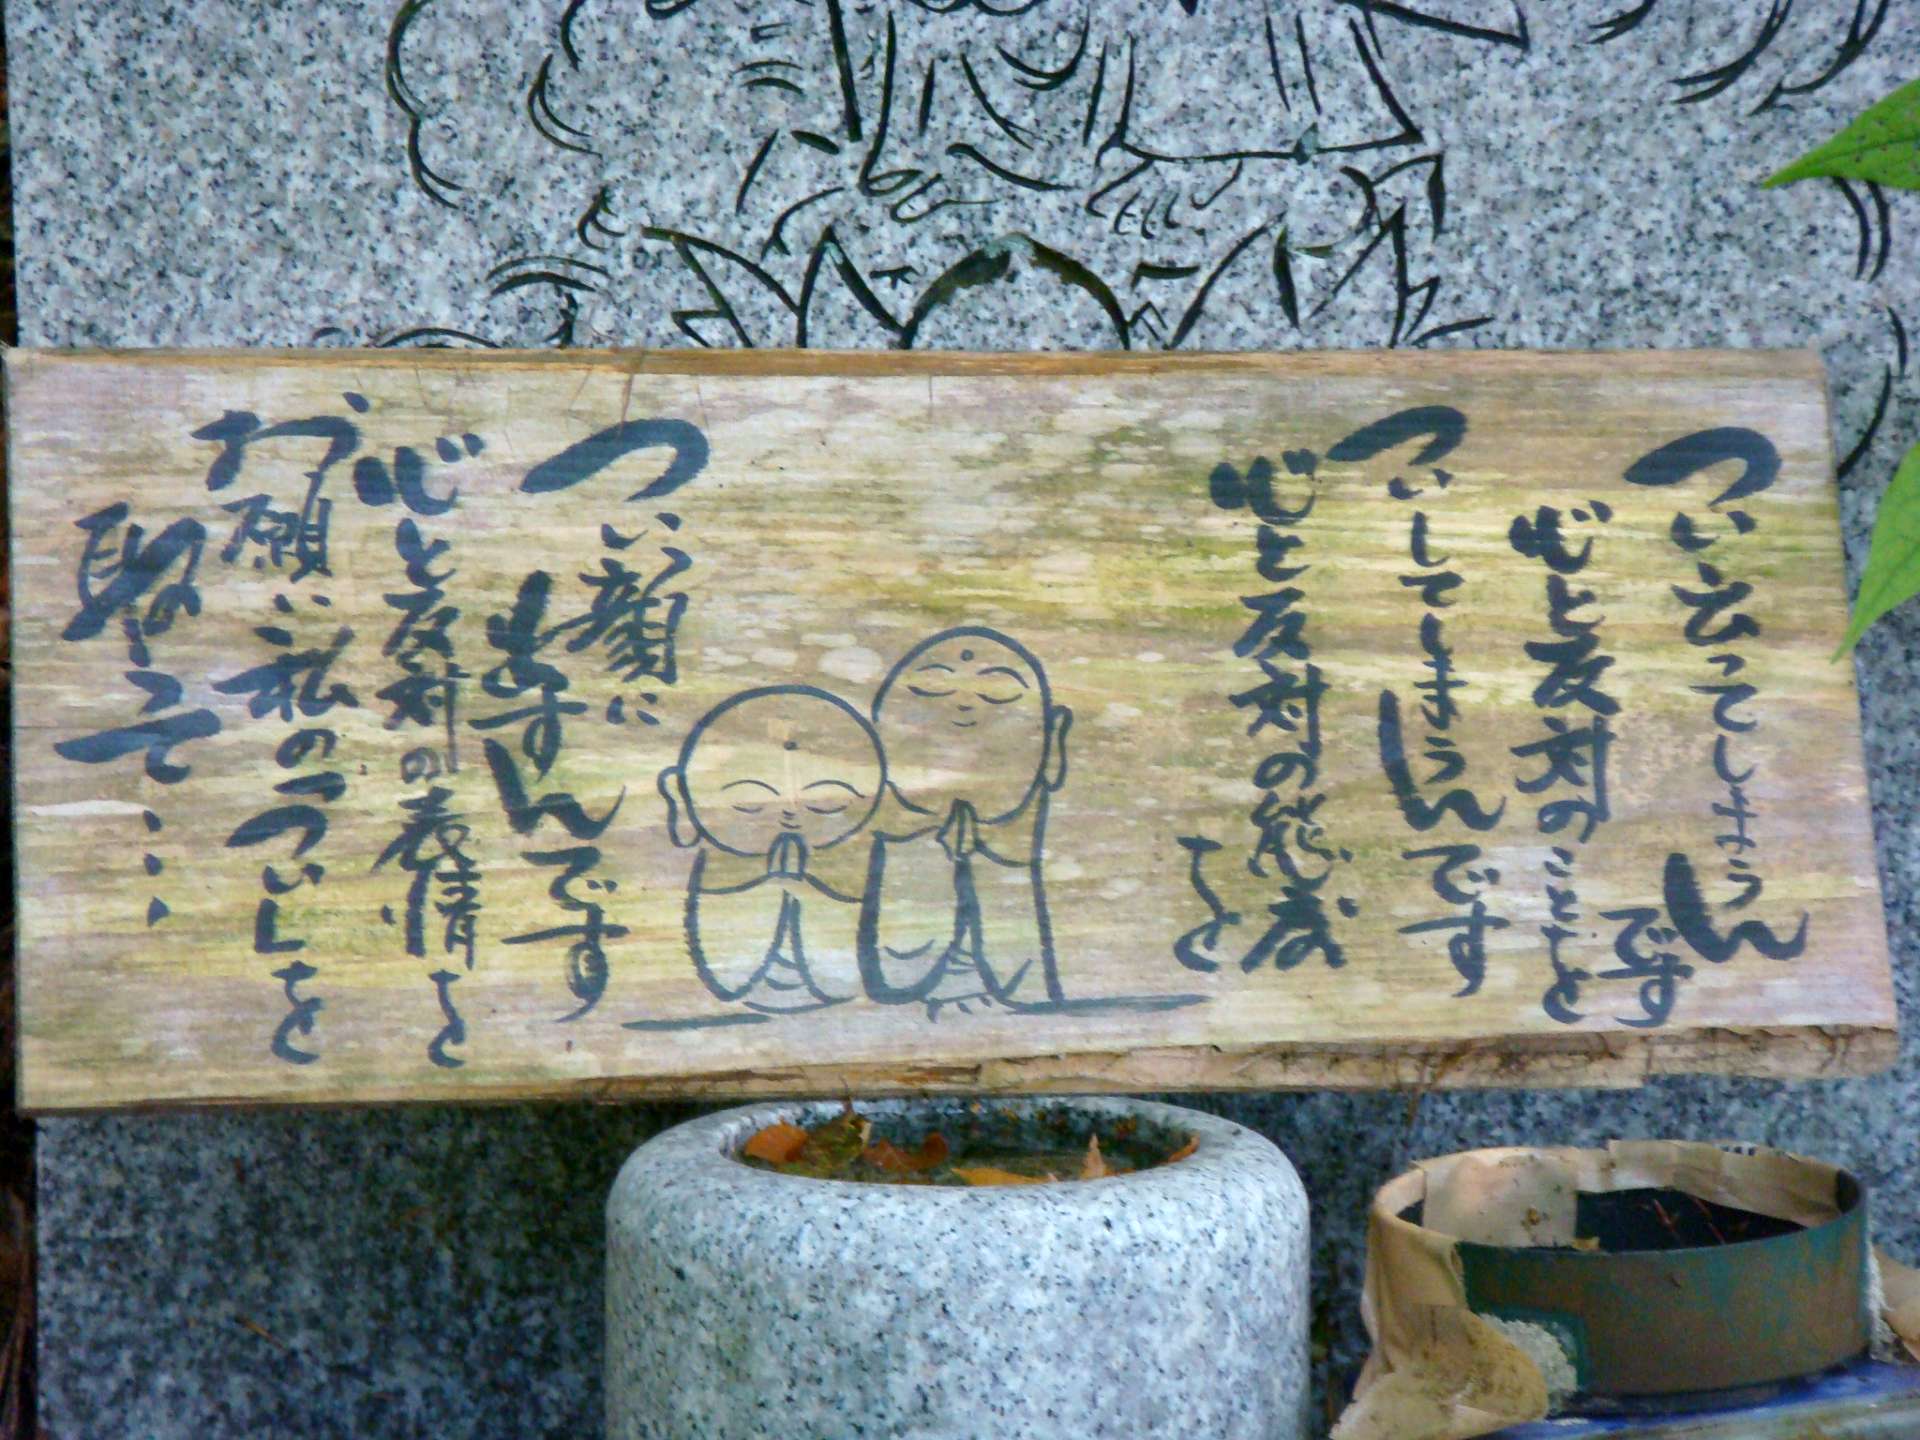 つい云ってしまうん
です
心と反対のことを
ついしてしまうんです
心と反対の態度
を
つい顔に
出すんです
心と反対の表情を
お願い私のついを
取って・・・